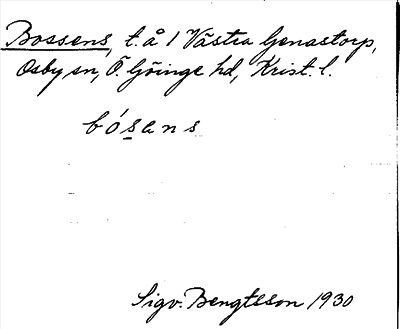 Bossens, t. å 1 Västra Genastorp,
Osby sn, Ö. Göinge hd, Krist. l.
bósans
Sigv. Bengtsson 1930